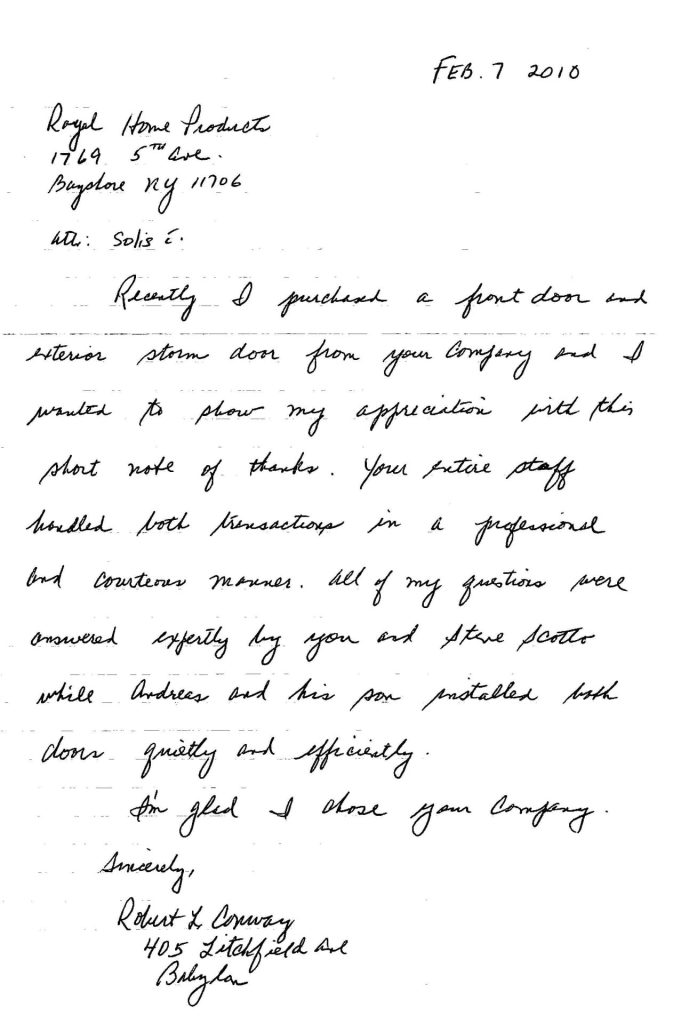 FEB. 7 2010
Royal Home Products
1769 5TH Ave.
Bayshore NY 11706
Att: Solis E.
Recently I purchased a front door and
exterior storm door from your Company and I
wanted to show my appreciation with this
short note of thanks. Your entire staff
handled both transactions in a professional
and courteous manner. All of my questions were
answered expertly by you and Steve Scotto
while Andreas and his son installed both
doors quietly and efficiently.
I'm glad I chose your Company.
Sincerely,
Robert L Conway
405 Litchfield Ave
Babylon